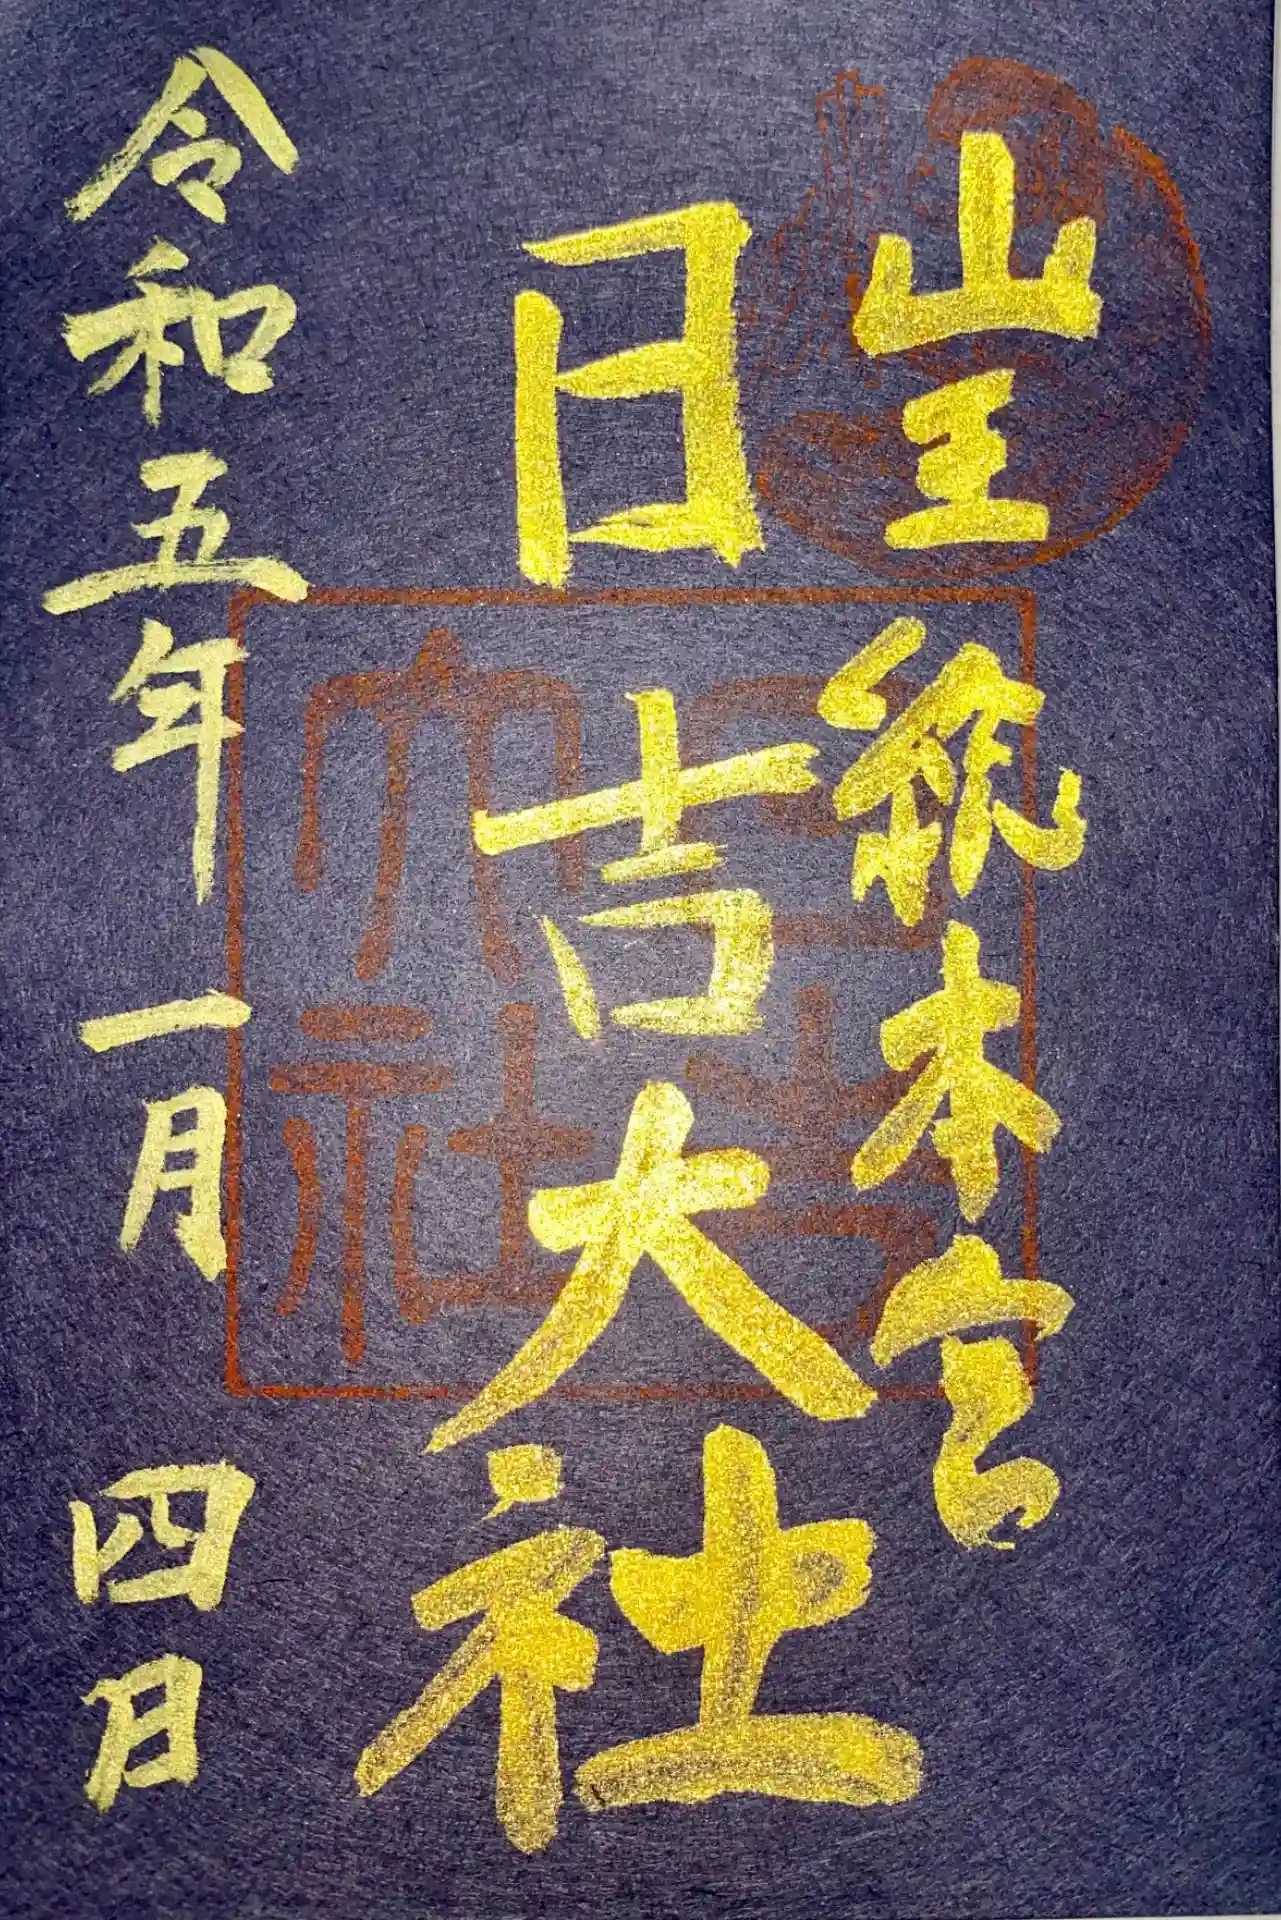 山王総本宮
日吉大社
令和五年一月四日
日吉大社